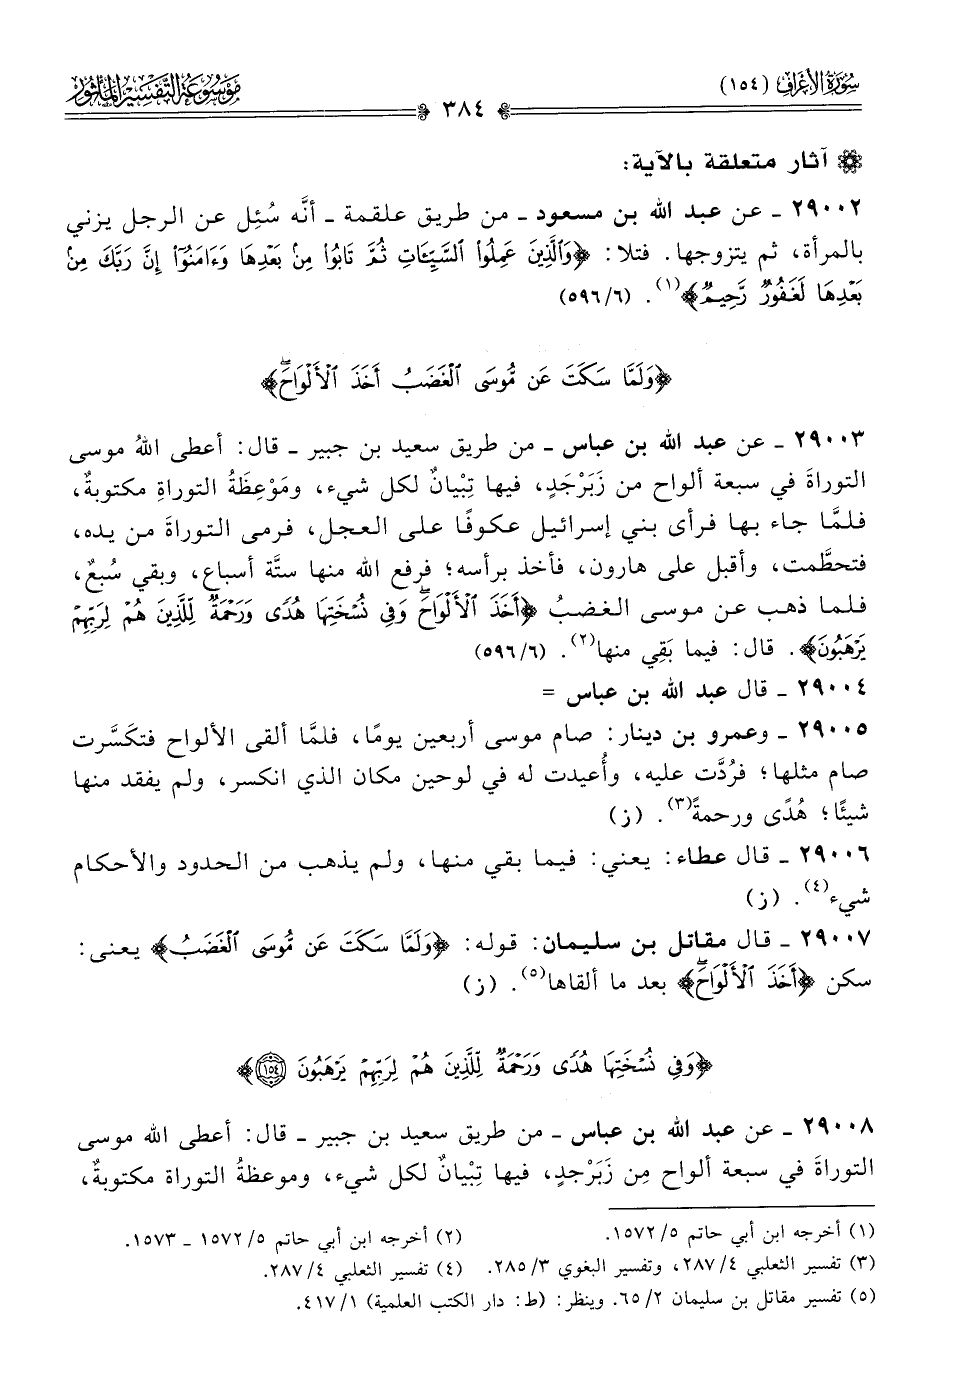 سُورَةُ الأَعْرَاف (١٥٤)
٣٨٤
مَوْسُوعَة التَّفْسِيرِ المَأْثُور
آثار متعلقة بالآية:
٢٩٠٠٢ ـ عن عبد الله بن مسعود ـ من طريق علقمة ـ أنَّه سُئِل عن الرجل يزني
بالمرأة، ثم يتزوجها. فتلا: ﴿وَٱلَّذِينَ عَمِلُوا۟ ٱلسَّيِّـَٔاتِ ثُمَّ تَابُوا۟ مِنۢ بَعْدِهَا وَءَامَنُوٓا۟ إِنَّ رَبَّكَ مِنۢ
بَعْدِهَا لَغَفُورٌ رَّحِيمٌ﴾(١). (٥٩٦/٦)
﴿وَلَمَّا سَكَتَ عَن مُّوسَى ٱلْغَضَبُ أَخَذَ ٱلْأَلْوَاحَۖ﴾
٢٩٠٠٣ ـ عن عبد الله بن عباس ـ من طريق سعيد بن جبير ـ قال: أعطى اللهُ موسى
التوراةَ في سبعة ألواح من زَبَرْجَدٍ، فيها تِبْيانٌ لكل شيء، ومَوْعِظَةُ التوراةِ مكتوبةٌ،
فلمَّا جاء بها فرأى بني إسرائيل عكوفًا على العجل، فرمى التوراةَ من يده،
فتحطَّمت، وأقبل على هارون، فأخذ برأسه؛ فرفع الله منها ستَّة أسباع، وبقي سُبعٌ،
فلما ذهب عن موسى الغضبُ ﴿أَخَذَ ٱلْأَلْوَاحَۖ وَفِى نُسْخَتِهَا هُدًى وَرَحْمَةٌ لِّلَّذِينَ هُمْ لِرَبِّهِمْ
يَرْهَبُونَ﴾. قال: فيما بَقِي منها(٢). (٥٩٦/٦)
٢٩٠٠٤ ـ قال عبد الله بن عباس =
٢٩٠٠٥ ـ وعمرو بن دينار: صام موسى أربعين يومًا، فلمَّا ألقى الألواح فتكَسَّرت
صام مثلها؛ فرُدَّت عليه، وأُعيدت له في لوحين مكان الذي انكسر، ولم يفقد منها
شيئًا؛ هُدًى ورحمةً(٣). (ز)
٢٩٠٠٦ ـ قال عطاء: يعني: فيما بقي منها، ولم يذهب من الحدود والأحكام
شيء(٤). (ز)
٢٩٠٠٧ ـ قال مقاتل بن سليمان: قوله: ﴿وَلَمَّا سَكَتَ عَن مُّوسَى ٱلْغَضَبُ﴾ يعني:
سكن ﴿أَخَذَ ٱلْأَلْوَاحَۖ﴾ بعد ما ألقاها(٥). (ز)
﴿وَفِى نُسْخَتِهَا هُدًى وَرَحْمَةٌ لِّلَّذِينَ هُمْ لِرَبِّهِمْ يَرْهَبُونَ ١٥٤﴾
٢٩٠٠٨ ـ عن عبد الله بن عباس ـ من طريق سعيد بن جبير ـ قال: أعطى الله موسى
التوراةَ في سبعة ألواح مِن زَبَرْجَدٍ، فيها تِبْيانٌ لكل شيء، وموعظةُ التوراة مكتوبةٌ،
(١) أخرجه ابن أبي حاتم ٥/ ١٥٧٢.
(٢) أخرجه ابن أبي حاتم ٥/ ١٥٧٢ ـ ١٥٧٣.
(٣) تفسير الثعلبي ٤/ ٢٨٧، وتفسير البغوي ٣/ ٢٨٥.
(٤) تفسير الثعلبي ٤/ ٢٨٧.
(٥) تفسير مقاتل بن سليمان ٢/ ٦٥. وينظر: (ط: دار الكتب العلمية) ١/ ٤١٧.